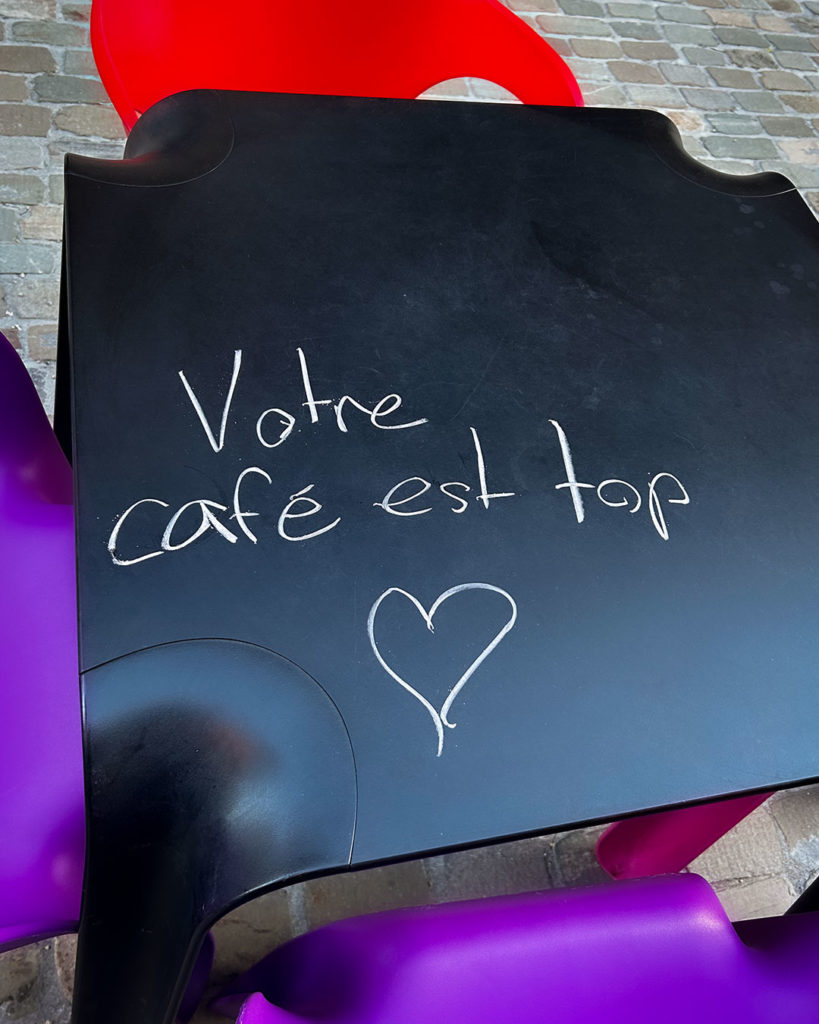 Votre
café est top